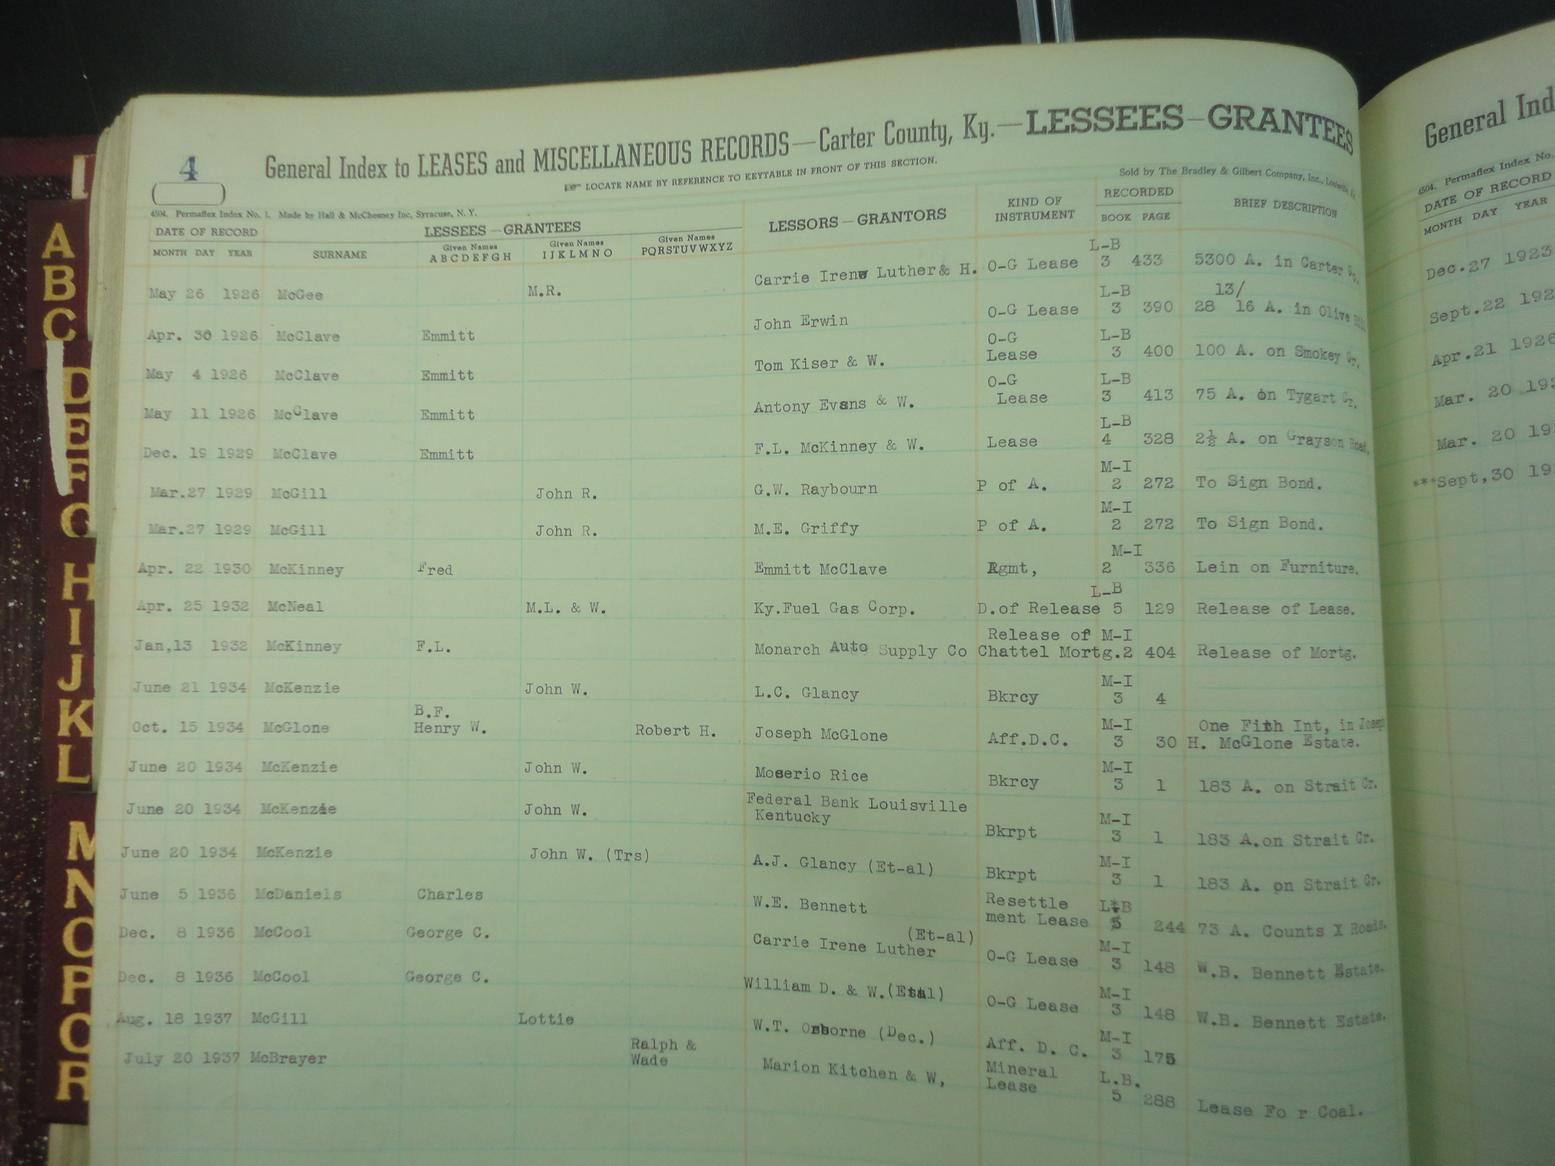 4
General Index to LEASES and MISCELLANEOUS RECORDS—Carter County, Ky.—LESSEES—GRANTEES
LOCATE NAME BY REFERENCE TO KEYTABLE IN FRONT OF THIS SECTION.
Sold by The Bradley & Gilbert Company, Inc.,
4504. Permaflex Index No. 1. Made by Hall & McChesney Inc, Syracuse, N. Y.
DATE OF RECORD LESSEES—GRANTEES LESSORS—GRANTORS KIND OF INSTRUMENT RECORDED BRIEF DESCRIPTION
MONTH DAY YEAR SURNAME Given Names ABCDEFGH Given Names IJKLMNO Given Names PQRSTUVWXYZ BOOK PAGE
May 26 1926 McGee M.R. Carrie Irene Luther & H. O-G Lease L-B 3 433 5300 A. in Carter Co.
Apr. 30 1926 McClave Emmitt John Erwin O-G Lease L-B 3 390 28 13/16 A. in Olive
May 4 1926 McClave Emmitt Tom Kiser & W. O-G Lease L-B 3 400 100 A. on Smokey Cr.
May 11 1926 McClave Emmitt Antony Evans & W. O-G Lease L-B 3 413 75 A. on Tygart Cr.
Dec. 19 1929 McClave Emmitt F.L. McKinney & W. Lease L-B 4 328 2½ A. on Grayson Road.
Mar.27 1929 McGill John R. G.W. Raybourn P of A. M-I 2 272 To Sign Bond.
Mar.27 1929 McGill John R. M.E. Griffy P of A. M-I 2 272 To Sign Bond.
Apr. 22 1930 McKinney Fred Emmitt McClave Agmt, M-I 2 336 Lein on Furniture.
Apr. 25 1932 McNeal M.L. & W. Ky.Fuel Gas Corp. D.of Release L-B 5 129 Release of Lease.
Jan,13 1932 McKinney F.L. Monarch Auto Supply Co Release of Chattel Mortg. M-I 2 404 Release of Mortg.
June 21 1934 McKenzie John W. L.C. Glancy Bkrcy M-I 3 4
Oct. 15 1934 McGlone B.F. Henry W. Robert H. Joseph McGlone Aff.D.C. M-I 3 30 One Fith Int, in Joseph H. McGlone Estate.
June 20 1934 McKenzie John W. Moserio Rice Bkrcy M-I 3 1 183 A. on Strait Cr.
June 20 1934 McKenzie John W. Federal Bank Louisville Kentucky Bkrpt M-I 3 1 183 A.on Strait Cr.
June 20 1934 McKenzie John W. (Trs) A.J. Glancy (Et-al) Bkrpt M-I 3 1 183 A. on Strait Cr.
June 5 1936 McDaniels Charles W.E. Bennett Resettle ment Lease L-B 5 244 73 A. Counts X Roads.
Dec. 8 1936 McCool George C. Carrie Irene Luther (Et-al) O-G Lease M-I 3 148 W.B. Bennett Estate.
Dec. 8 1936 McCool George C. William D. & W.(Etal) O-G Lease M-I 3 148 W.B. Bennett Estate.
Aug. 18 1937 McGill Lottie W.T. Osborne (Dec.) Aff. D. C. M-I 3 175
July 20 1937 McBrayer Ralph & Wade Marion Kitchen & W, Mineral Lease L.B. 5 288 Lease Fo r Coal.
General Ind
4504. Permaflex Index No.
DATE OF RECORD
MONTH DAY YEAR
Dec.27 1923
Sept.22 192
Apr.21 1926
Mar. 20 19
Mar. 20 19
***Sept,30 19
A
B
C
D
E
F
G
H
I
J
K
L
M
N
O
P
Q
R